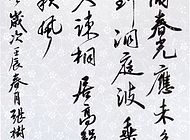 春光應未
到洞庭波
疎桐居高
秋風
歲次壬辰春月張樹